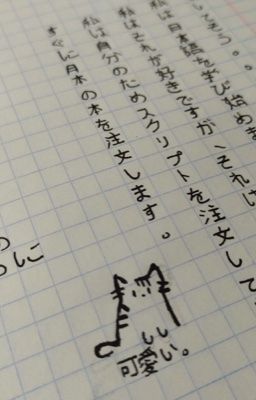 してそう。。
私は日本語を学び始めま
私はそれが好きですが、それは
私は自分のためスクリプトを注文して
すぐに日本の本を注文します。
に
しい
可愛い。